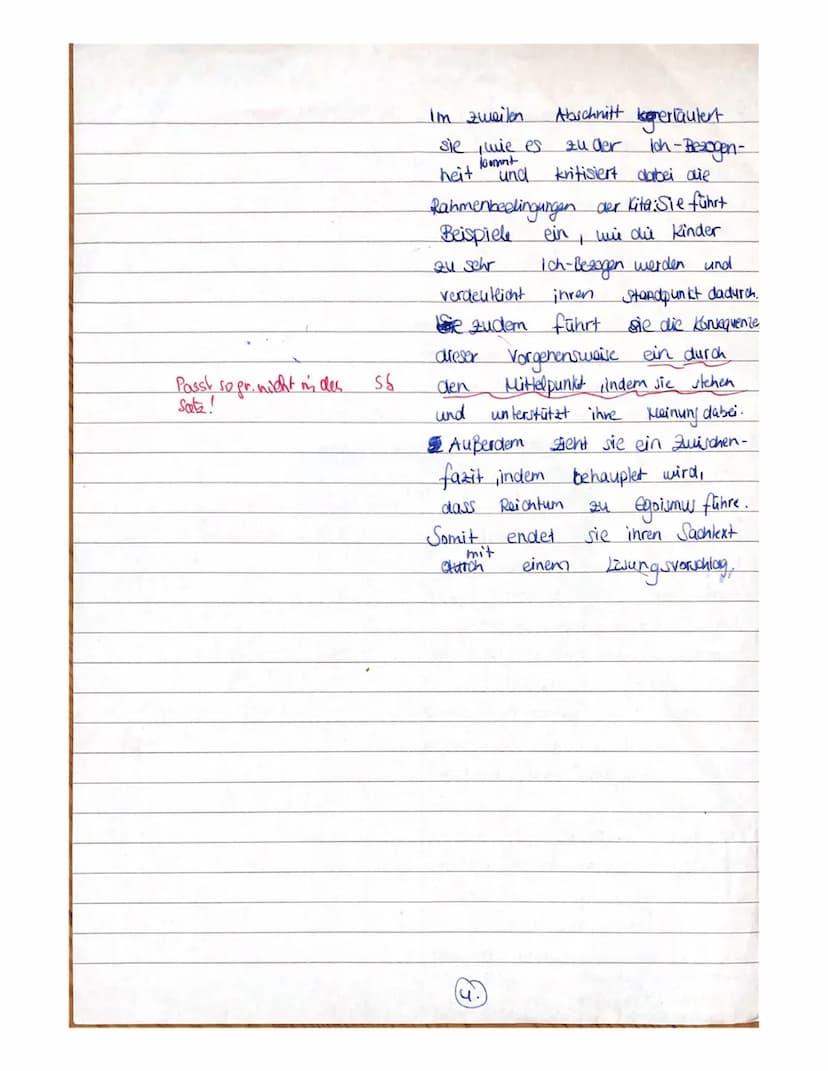 Im zweiten Abschnitt erläutert
sie, wie es zu der Ich-Bezogen-
heit kommt und kritisiert dabei die
Rahmenbedingungen der Kita. Sie führt
Beispiele ein, wie die Kinder
zu sehr Ich-Bezogen werden und
verdeutlicht ihren Standpunkt dadurch.
zudem führt sie die Konsequenze
dieser Vorgehensweise ein durch
Passt so gr. nicht in den Sb
Satz!
den Mittelpunkt, indem sie stehen
und unterstützt ihre Meinung dabei.
Außerdem zieht sie ein Zwischen-
fazit, indem behauptet wird,
dass Reichtum zu Egoismus führe.
Somit endet sie ihren Sachtext
mit einem Lösungsvorschlag.
4.